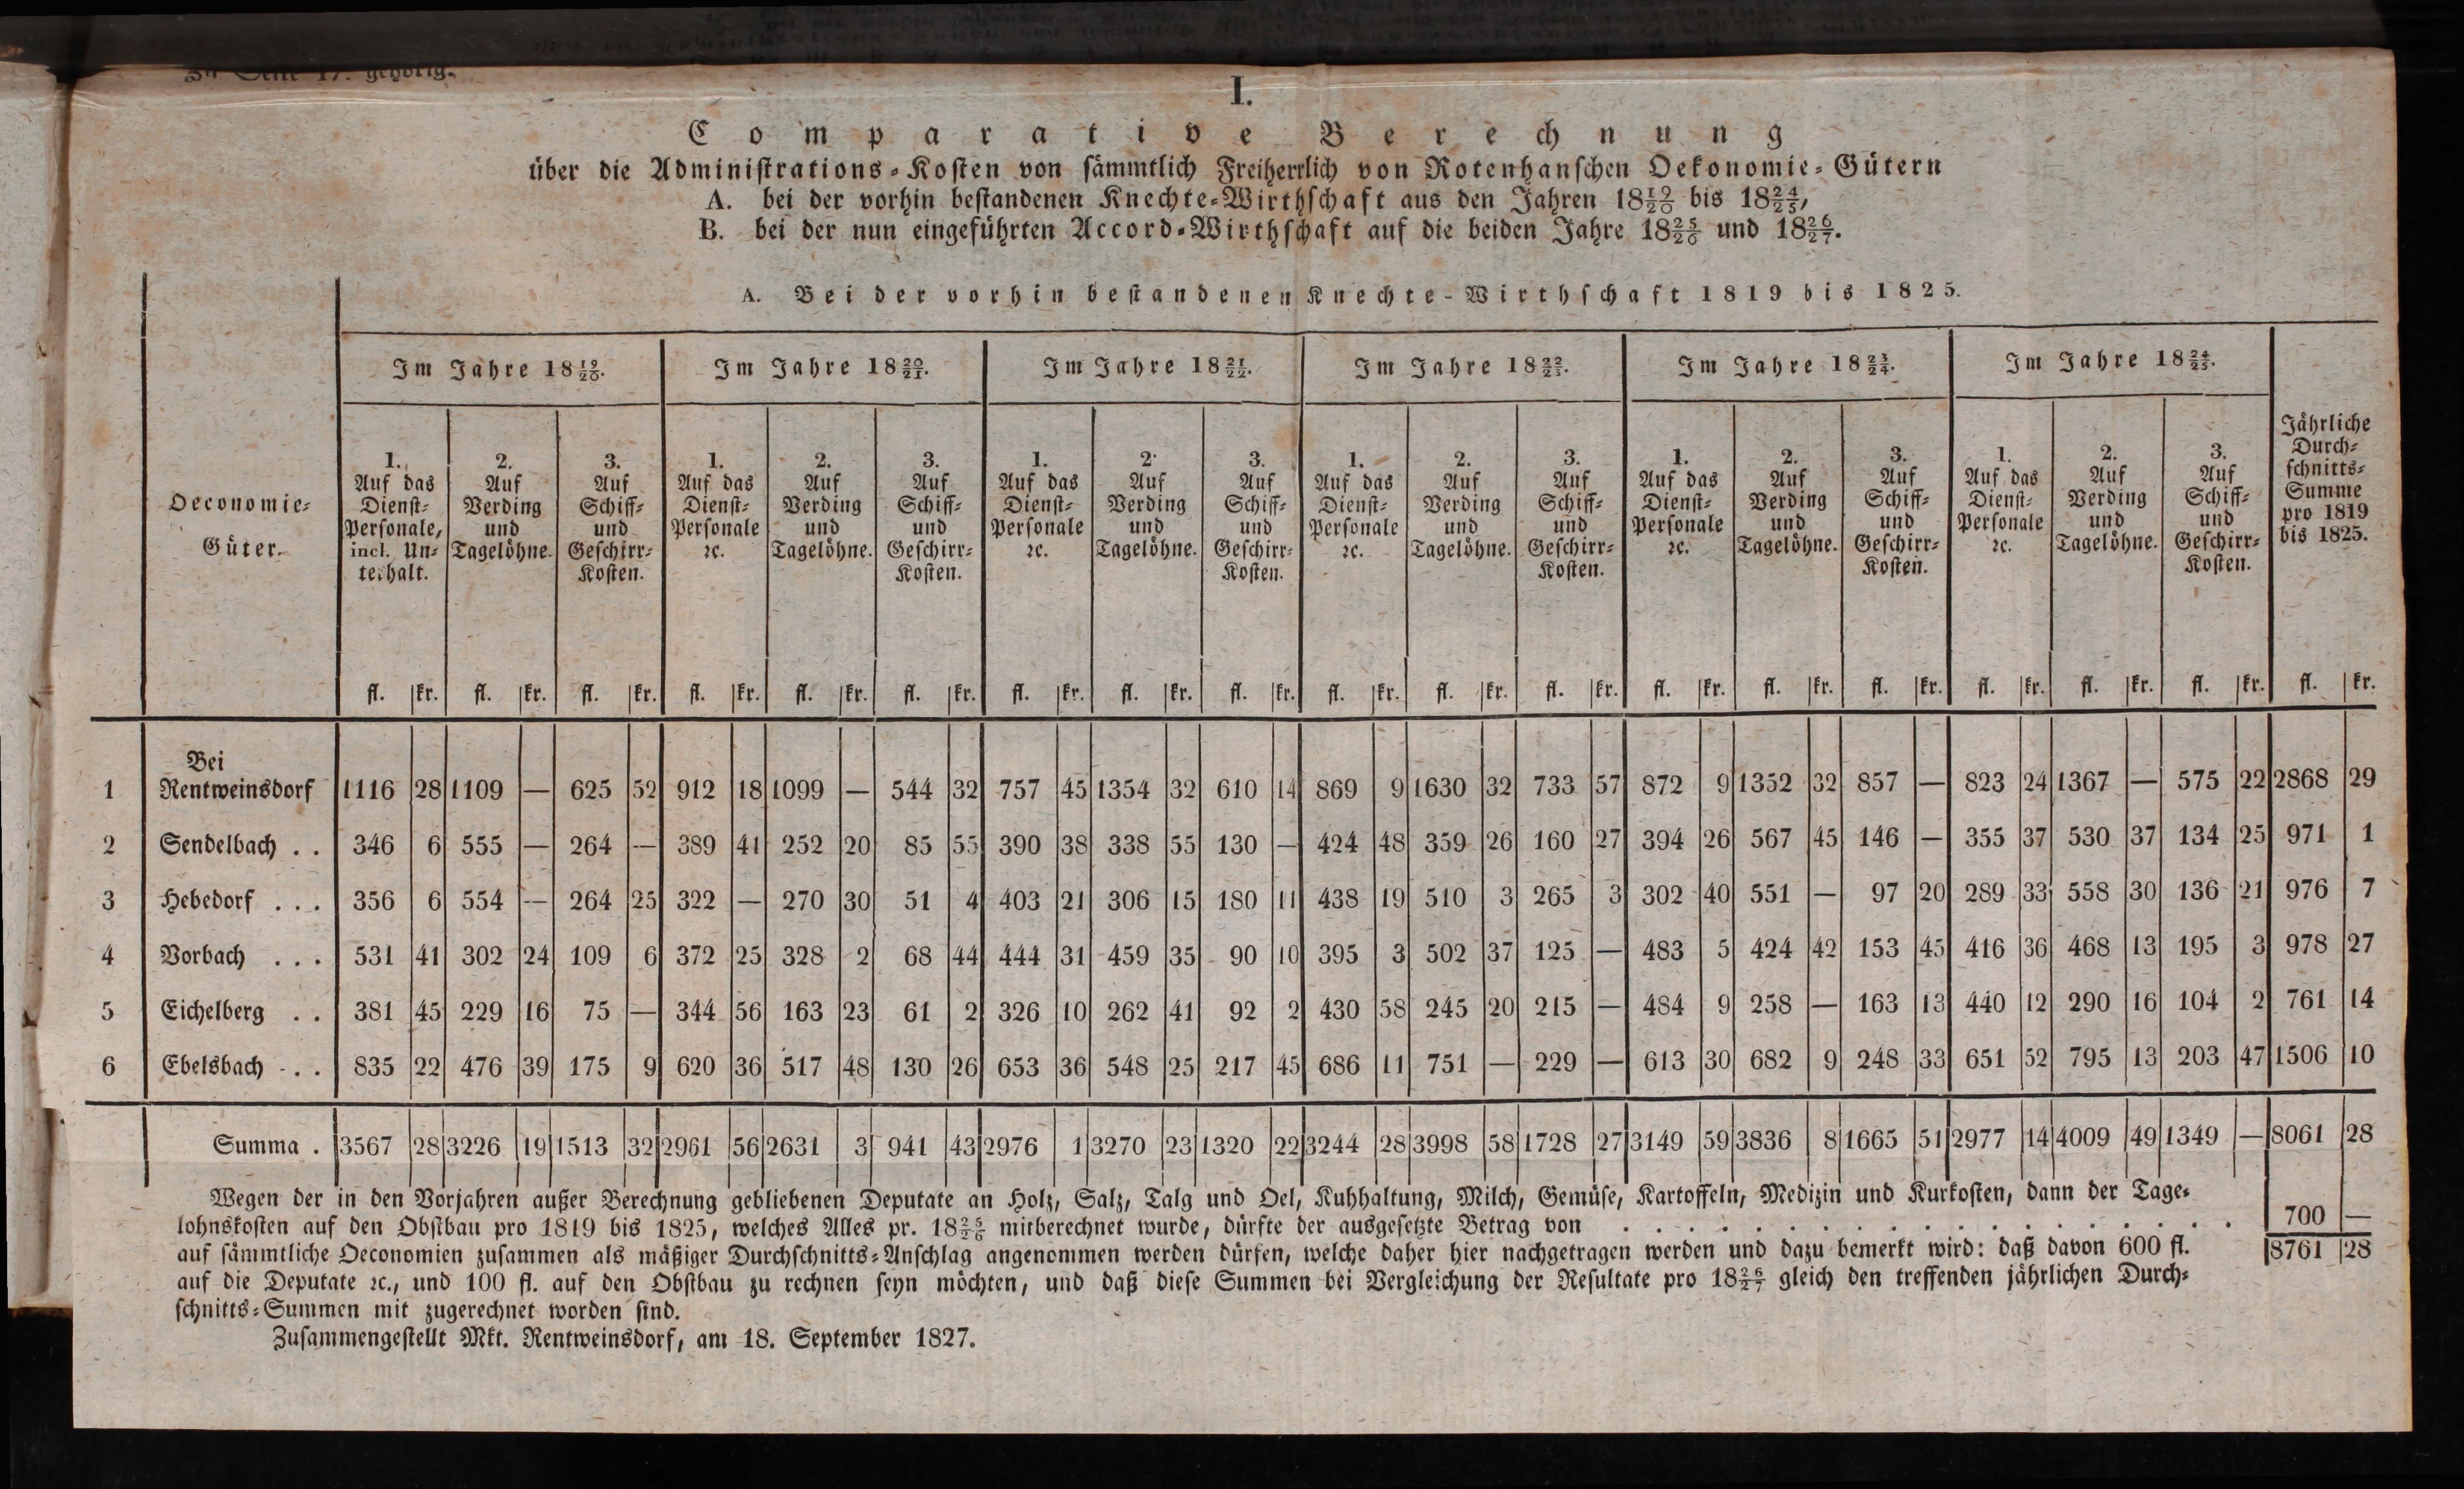 Zu Seite 17. gehörig.
I.
Comparative Berechnung
über die Administrations-Kosten von sämmtlich Freiherrlich von Rotenhanschen Oekonomie-Gütern
A. bei der vorhin bestandenen Knechte-Wirthschaft aus den Jahren 18 19/20 bis 18 24/25,
B. bei der nun eingeführten Accord-Wirthschaft auf die beiden Jahre 18 25/26 und 18 26/27.
A. Bei der vorhin bestandenen Knechte-Wirthschaft 1819 bis 1825.
Oeconomie-
Güter.
Im Jahre 18 19/20. Im Jahre 18 20/21. Im Jahre 18 21/22. Im Jahre 18 22/23. Im Jahre 18 23/24. Im Jahre 18 24/25.
Jährliche
Durch-
schnitts-
Summe
pro 1819
bis 1825.
1. 2. 3. 1. 2. 3. 1. 2. 3. 1. 2. 3. 1. 2. 3. 1. 2. 3.
Auf das Auf Auf Auf das Auf Auf Auf das Auf Auf Auf das Auf Auf Auf das Auf Auf Auf das Auf Auf
Dienst- Verding Schiff- Dienst- Verding Schiff- Dienst- Verding Schiff- Dienst- Verding Schiff- Dienst- Verding Schiff- Dienst- Verding Schiff-
Personale, und und Personale und und Personale und und Personale und und Personale und und Personale und und
incl. Un- Tagelöhne. Geschirr- ꝛc. Tagelöhne. Geschirr- ꝛc. Tagelöhne. Geschirr- ꝛc. Tagelöhne. Geschirr- ꝛc. Tagelöhne. Geschirr- ꝛc. Tagelöhne. Geschirr-
terhalt. Kosten. Kosten. Kosten. Kosten. Kosten. Kosten.
fl. kr. fl. kr. fl. kr. fl. kr. fl. kr. fl. kr. fl. kr. fl. kr. fl. kr. fl. kr. fl. kr. fl. kr. fl. kr. fl. kr. fl. kr. fl. kr. fl. kr. fl. kr. fl. kr.
Bei
1 Rentweinsdorf 1116 28 1109 — 625 52 912 18 1099 — 544 32 757 45 1354 32 610 14 869 9 1630 32 733 57 872 9 1352 32 857 — 823 24 1367 — 575 22 2868 29
2 Sendelbach . . 346 6 555 — 264 — 389 41 252 20 85 55 390 38 338 55 130 — 424 48 359 26 160 27 394 26 567 45 146 — 355 37 530 37 134 25 971 1
3 Hebedorf . . . 356 6 554 — 264 25 322 — 270 30 51 4 403 21 306 15 180 11 438 19 510 3 265 3 302 40 551 — 97 20 289 33 558 30 136 21 976 7
4 Vorbach . . . 531 41 302 24 109 6 372 25 328 2 68 44 444 31 459 35 90 10 395 3 502 37 125 — 483 5 424 42 153 45 416 36 468 13 195 3 978 27
5 Eichelberg . . 381 45 229 16 75 — 344 56 163 23 61 2 326 10 262 41 92 2 430 58 245 20 215 — 484 9 258 — 163 13 440 12 290 16 104 2 761 14
6 Ebelsbach . . . 835 22 476 39 175 9 620 36 517 48 130 26 653 36 548 25 217 45 686 11 751 — 229 — 613 30 682 9 248 33 651 52 795 13 203 47 1506 10
Summa . 3567 28 3226 19 1513 32 2961 56 2631 3 941 43 2976 1 3270 23 1320 22 3244 28 3998 58 1728 27 3149 59 3836 8 1665 51 2977 14 4009 49 1349 — 8061 28
Wegen der in den Vorjahren außer Berechnung gebliebenen Deputate an Holz, Salz, Talg und Oel, Kuhhaltung, Milch, Gemüse, Kartoffeln, Medizin und Kurkosten, dann der Tage-
lohnskosten auf den Obstbau pro 1819 bis 1825, welches Alles pr. 18 25/26 mitberechnet wurde, dürfte der ausgesetzte Betrag von . . . . . . . . . . . . . . . . . . . 700 —
auf sämmtliche Oeconomien zusammen als mäßiger Durchschnitts-Anschlag angenommen werden dürfen, welche daher hier nachgetragen werden und dazu bemerkt wird: daß davon 600 fl. 8761 28
auf die Deputate ꝛc., und 100 fl. auf den Obstbau zu rechnen seyn möchten, und daß diese Summen bei Vergleichung der Resultate pro 18 26/27 gleich den treffenden jährlichen Durch-
schnitts-Summen mit zugerechnet worden sind.
Zusammengestellt Mkt. Rentweinsdorf, am 18. September 1827.